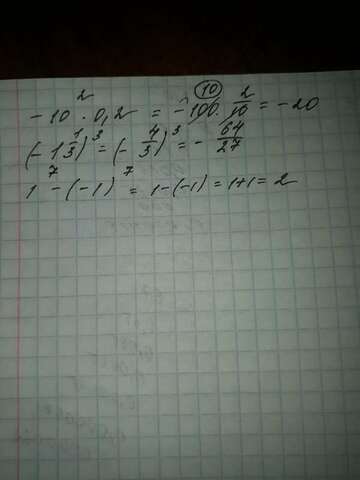 -10² · 0,2 = -100 · 2/10 = -20
10
(-1 1/3)³ = (-4/3)³ = -64/27
1⁷ - (-1)⁷ = 1-(-1) = 1+1 = 2